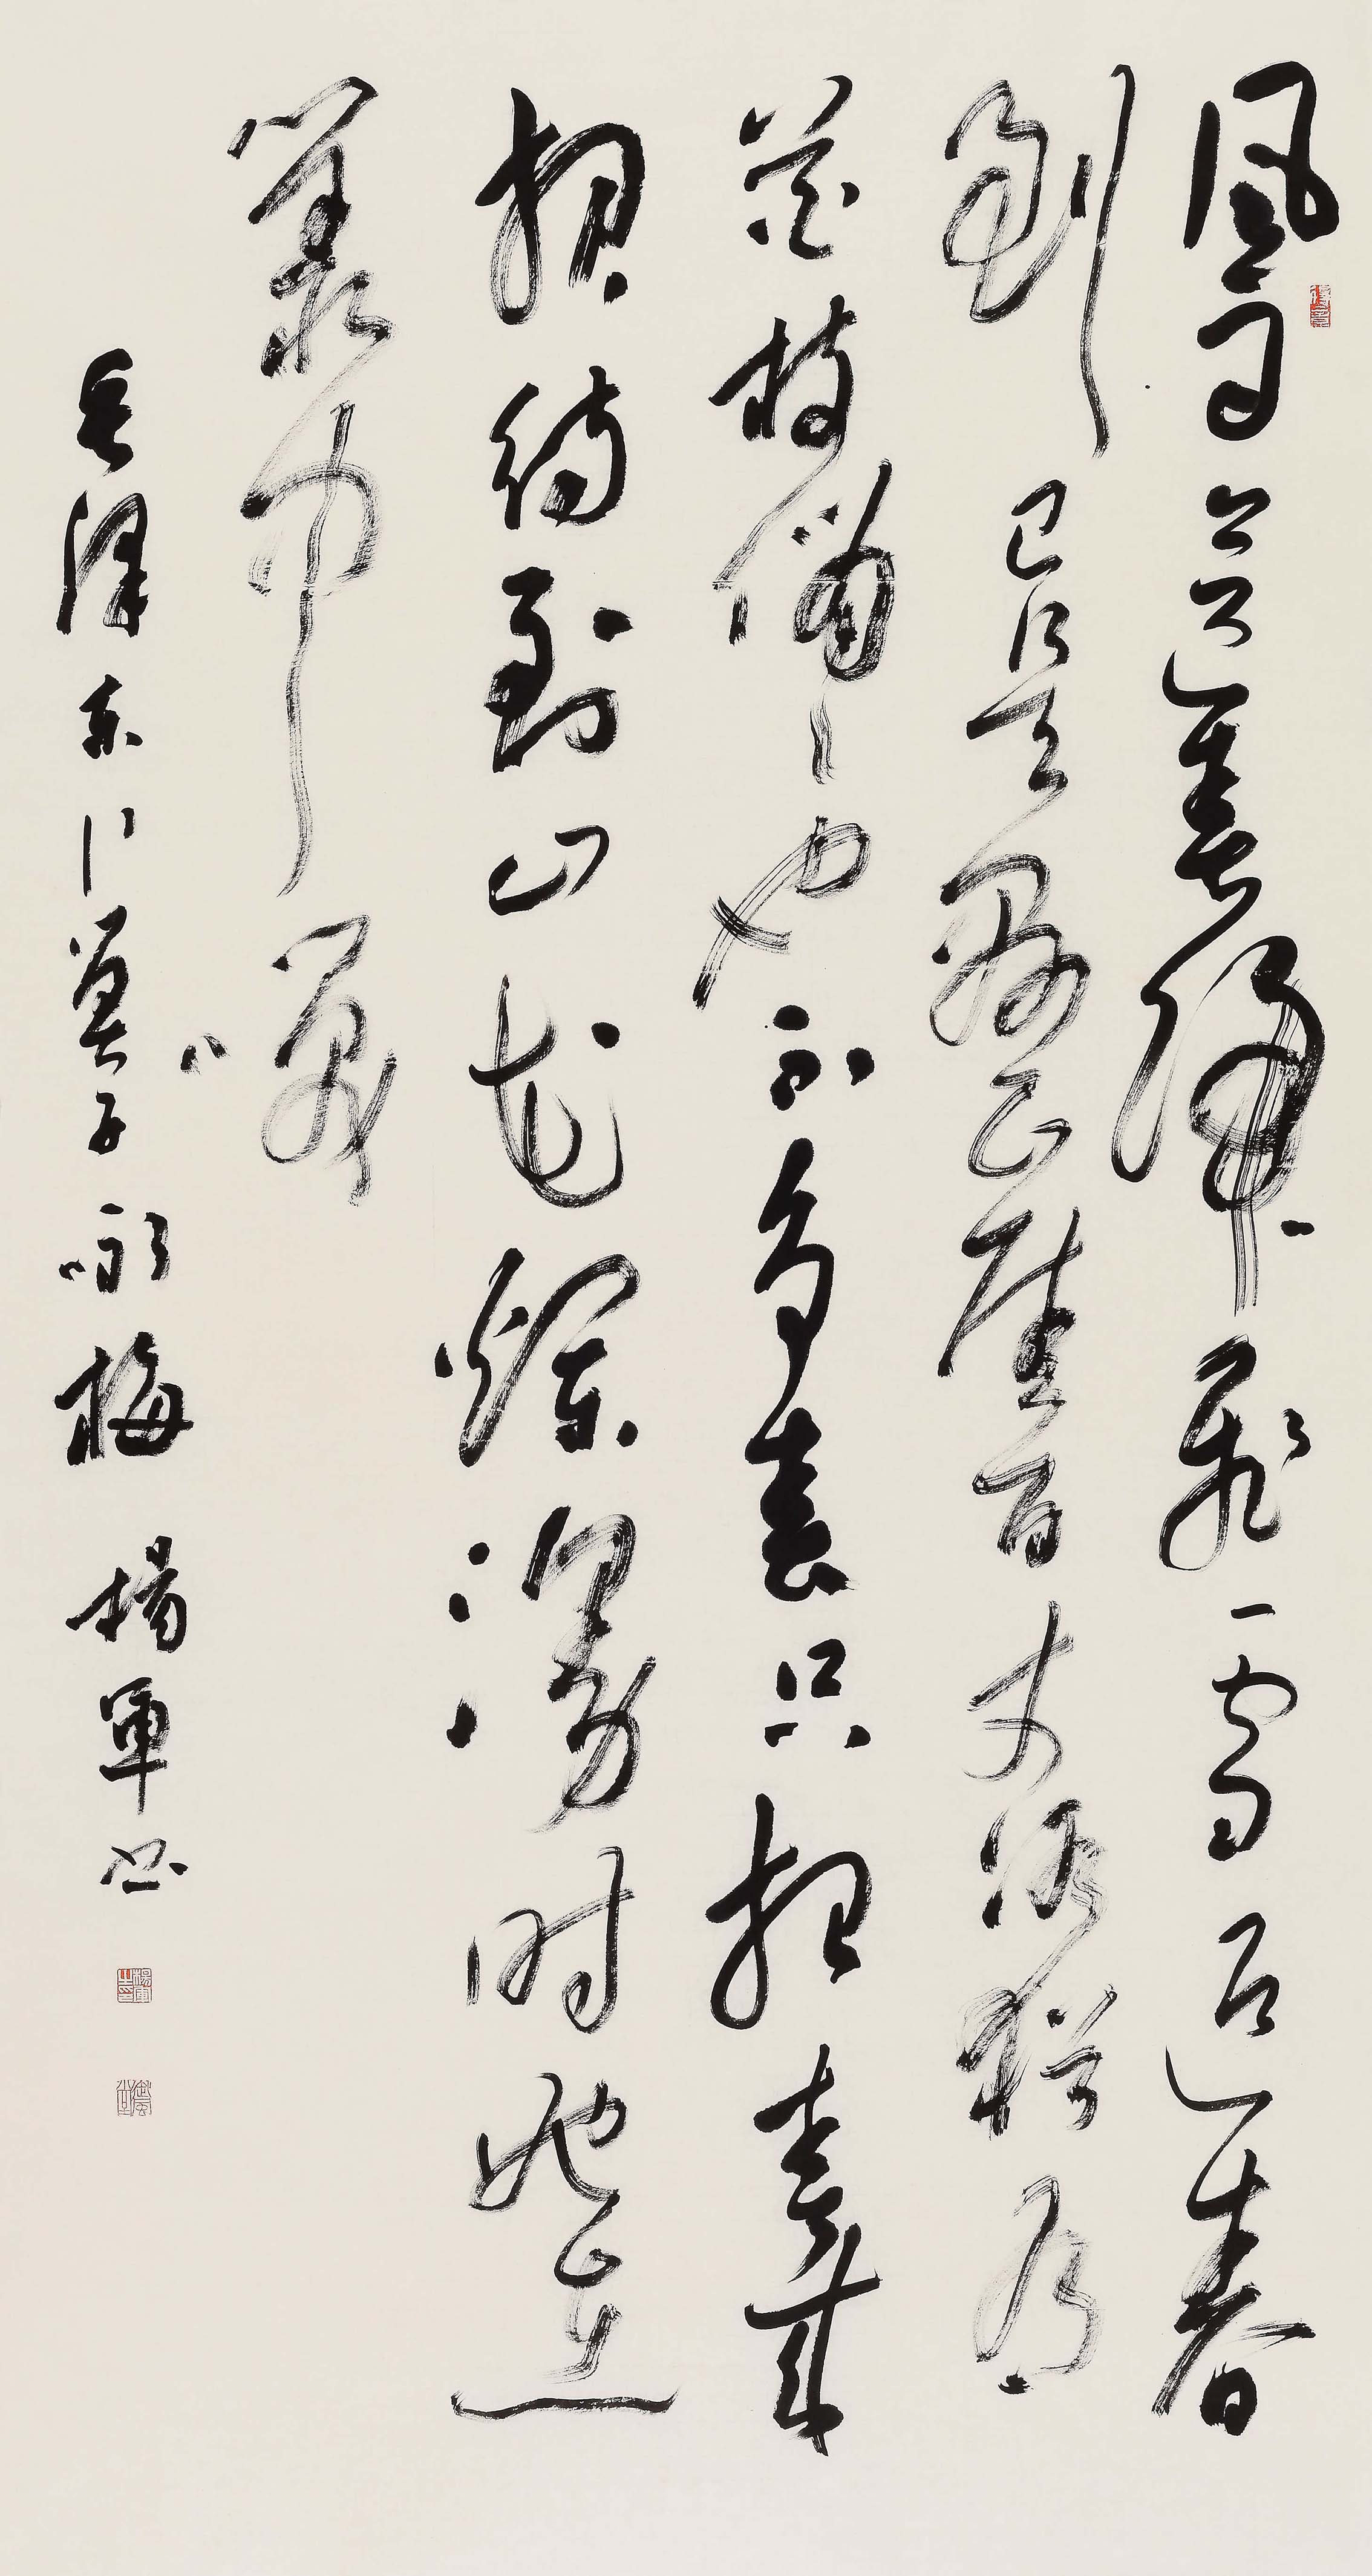 風雨送春歸飛雪迎春
到已是懸崖百丈冰猶有
花枝俏〻也不争春只把春來
報待到山花爛漫時她在
叢中笑
毛澤東卜算子咏梅 楊軍书